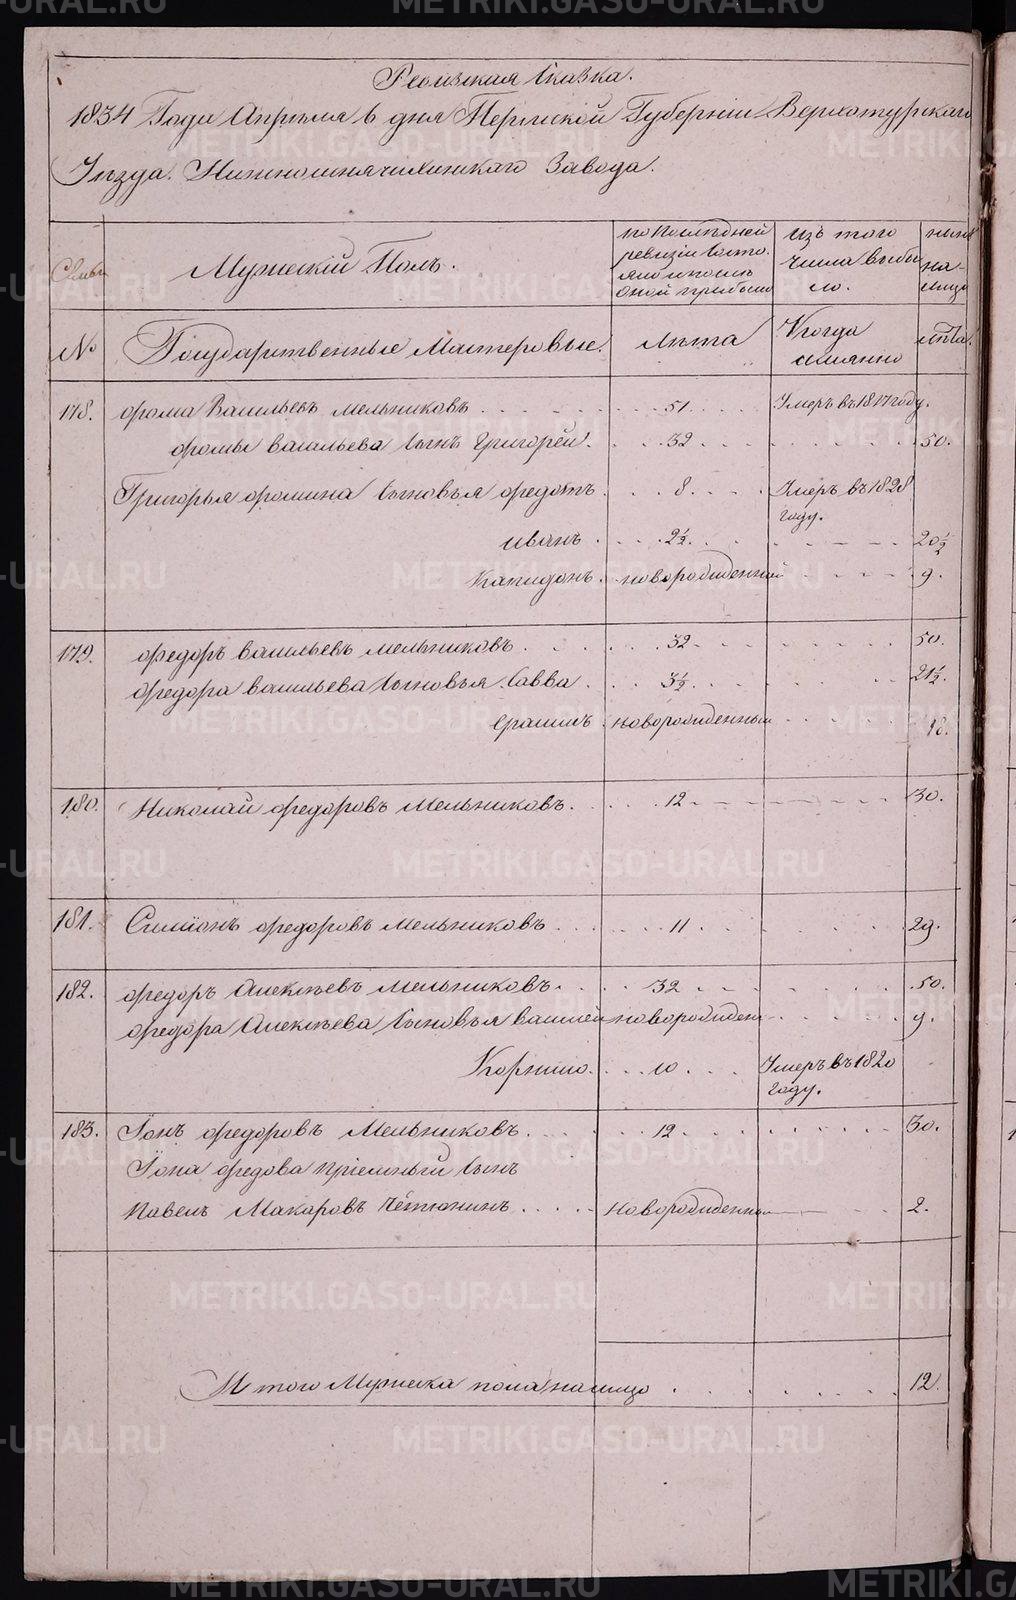 Ревизская Сказка.
1834 Года Апрѣля 6 дня Пермской Губерніи Верхотурскаго
Уѣзда. Нижнесинячихинскаго Завода.
Семьи
Мужескій Полъ.
по Послѣдней ревизіи состо-
яло и послѣ оной прибыло
Изъ того числа выбы
ло.
нынѣ на-
лицо
№
Государственные Мастеровые.
Лѣта
Когда
имянно
лѣта.
178. Фома Васильевъ Мельниковъ . . . 51. Умеръ въ 1817 году.
Фомы Васильева сынъ Григорей . . . 32 . . . 50.
Григорья Фомина сыновья Федотъ . . . 8 . . . Умеръ въ 1828
году.
Иванъ . . . 2½ . . . 20½
Капидонъ . новорожденный . . . 9.
179. Федоръ Васильевъ Мельниковъ . . . 32 . . . 50.
Федора Васильева сыновья Савва . . . 3½ . . . 21½.
новорожденный . . . 18.
180. Николай Федоровъ Мельниковъ . . . 12 . . . 30.
181. Симіонъ Федоровъ Мельниковъ . . . 11 . . . 29.
182. Федоръ Алексѣевъ Мельниковъ . . . 32 . . . 50.
Федора Алексѣева сыновья Василей новорожден . . . 9.
Корнило . . . 10 . . . Умеръ въ 1820
году.
183. Іонъ Федоровъ Мельниковъ . . . 12 . . . 30.
Іона Федова пріемный сынъ
Павелъ Макаровъ . . . новорожденный . . . 2.
Итого Мужеска пола налицо . . . 12.
METRIKI.GASO-URAL.RU